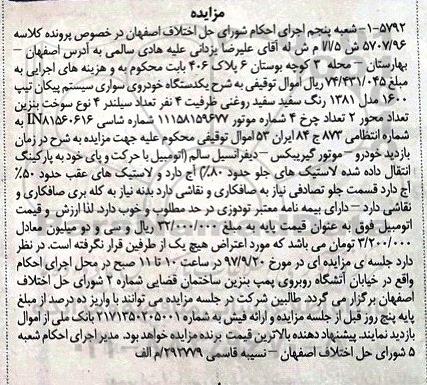 مزایده
۱-۵۷۹۲- شعبه پنجم اجرای احکام شورای حل اختلاف اصفهان در خصوص پرونده کلاسه
۵۷۰۷/۹۶ ش ۷/۵ م ش له آقای علیرضا یزدانی علیه هادی سالمی به آدرس اصفهان –
بهارستان – محله ۳ کوچه بوستان ۶ پلاک ۴۰۶ بابت محکوم به و هزینه های اجرایی به
مبلغ ۷۴/۴۳۱/۰۴۵ ریال اموال توقیفی به شرح یکدستگاه خودروی سواری سیستم پیکان تیپ
۱۶۰۰ مدل ۱۳۸۱ رنگ سفید سفید روغنی ظرفیت ۴ نفر تعداد سیلندر ۴ نوع سوخت بنزین
تعداد محور ۲ تعداد چرخ ۴ شماره موتور ۱۱۱۵۸۱۵۹۶۷۷ شماره شاسی IN۸۱۵۶۰۶۱۶ به
شماره انتظامی ۸۷۳ ج ۸۴ ایران ۵۳ اموال توقیفی محکوم علیه جهت مزایده به شرح در زمان
بازدید خودرو – موتور گیربیکس – دیفرانسیل سالم (اتومبیل با حرکت و پای خود به پارکینگ
انتقال داده شده لاستیک های جلو حدود ۸۰٪) آج دارد و لاستیک های عقب حدود ۵۰٪
آج دارد قسمت جلو تصادفی نیاز به صافکاری و نقاشی دارد بدنه نیاز به کله بری صافکاری و
نقاشی دارد – دارای بیمه نامه معتبر تودوزی در حد مطلوب و خوب دارد. لذا ارزش و قیمت
اتومبیل فوق به عنوان قیمت پایه به مبلغ ۳۲/۰۰۰/۰۰۰ ریال و سی و دو میلیون معادل
۳/۲۰۰/۰۰۰ تومان می باشد که مورد اعتراض هیچ یک از طرفین قرار نگرفته است. در نظر
دارد جلسه ی مزایده ای در مورخ ۹۷/۹/۲۰ در ساعت ۱۰ تا ۱۱ صبح در محل اجرای احکام
واقع در خیابان آتشگاه روبروی پمپ بنزین ساختمان قضایی شماره ۲ شورای حل اختلاف
اصفهان برگزار می گردد. طالبین شرکت در جلسه مزایده می توانند با واریز ده درصد از مبلغ
پایه پنج روز قبل از جلسه مزایده و ارائه فیش به شماره ۲۱۷۱۳۵۰۲۰۵۰۰۱ بانک ملی از اموال
بازدید نمایند. پیشنهاد دهنده بالاترین قیمت برنده مزایده خواهد بود. مدیر اجرای احکام شعبه
۵ شورای حل اختلاف اصفهان – نسیبه قاسمی ۲۹۲۷۷۹/م الف